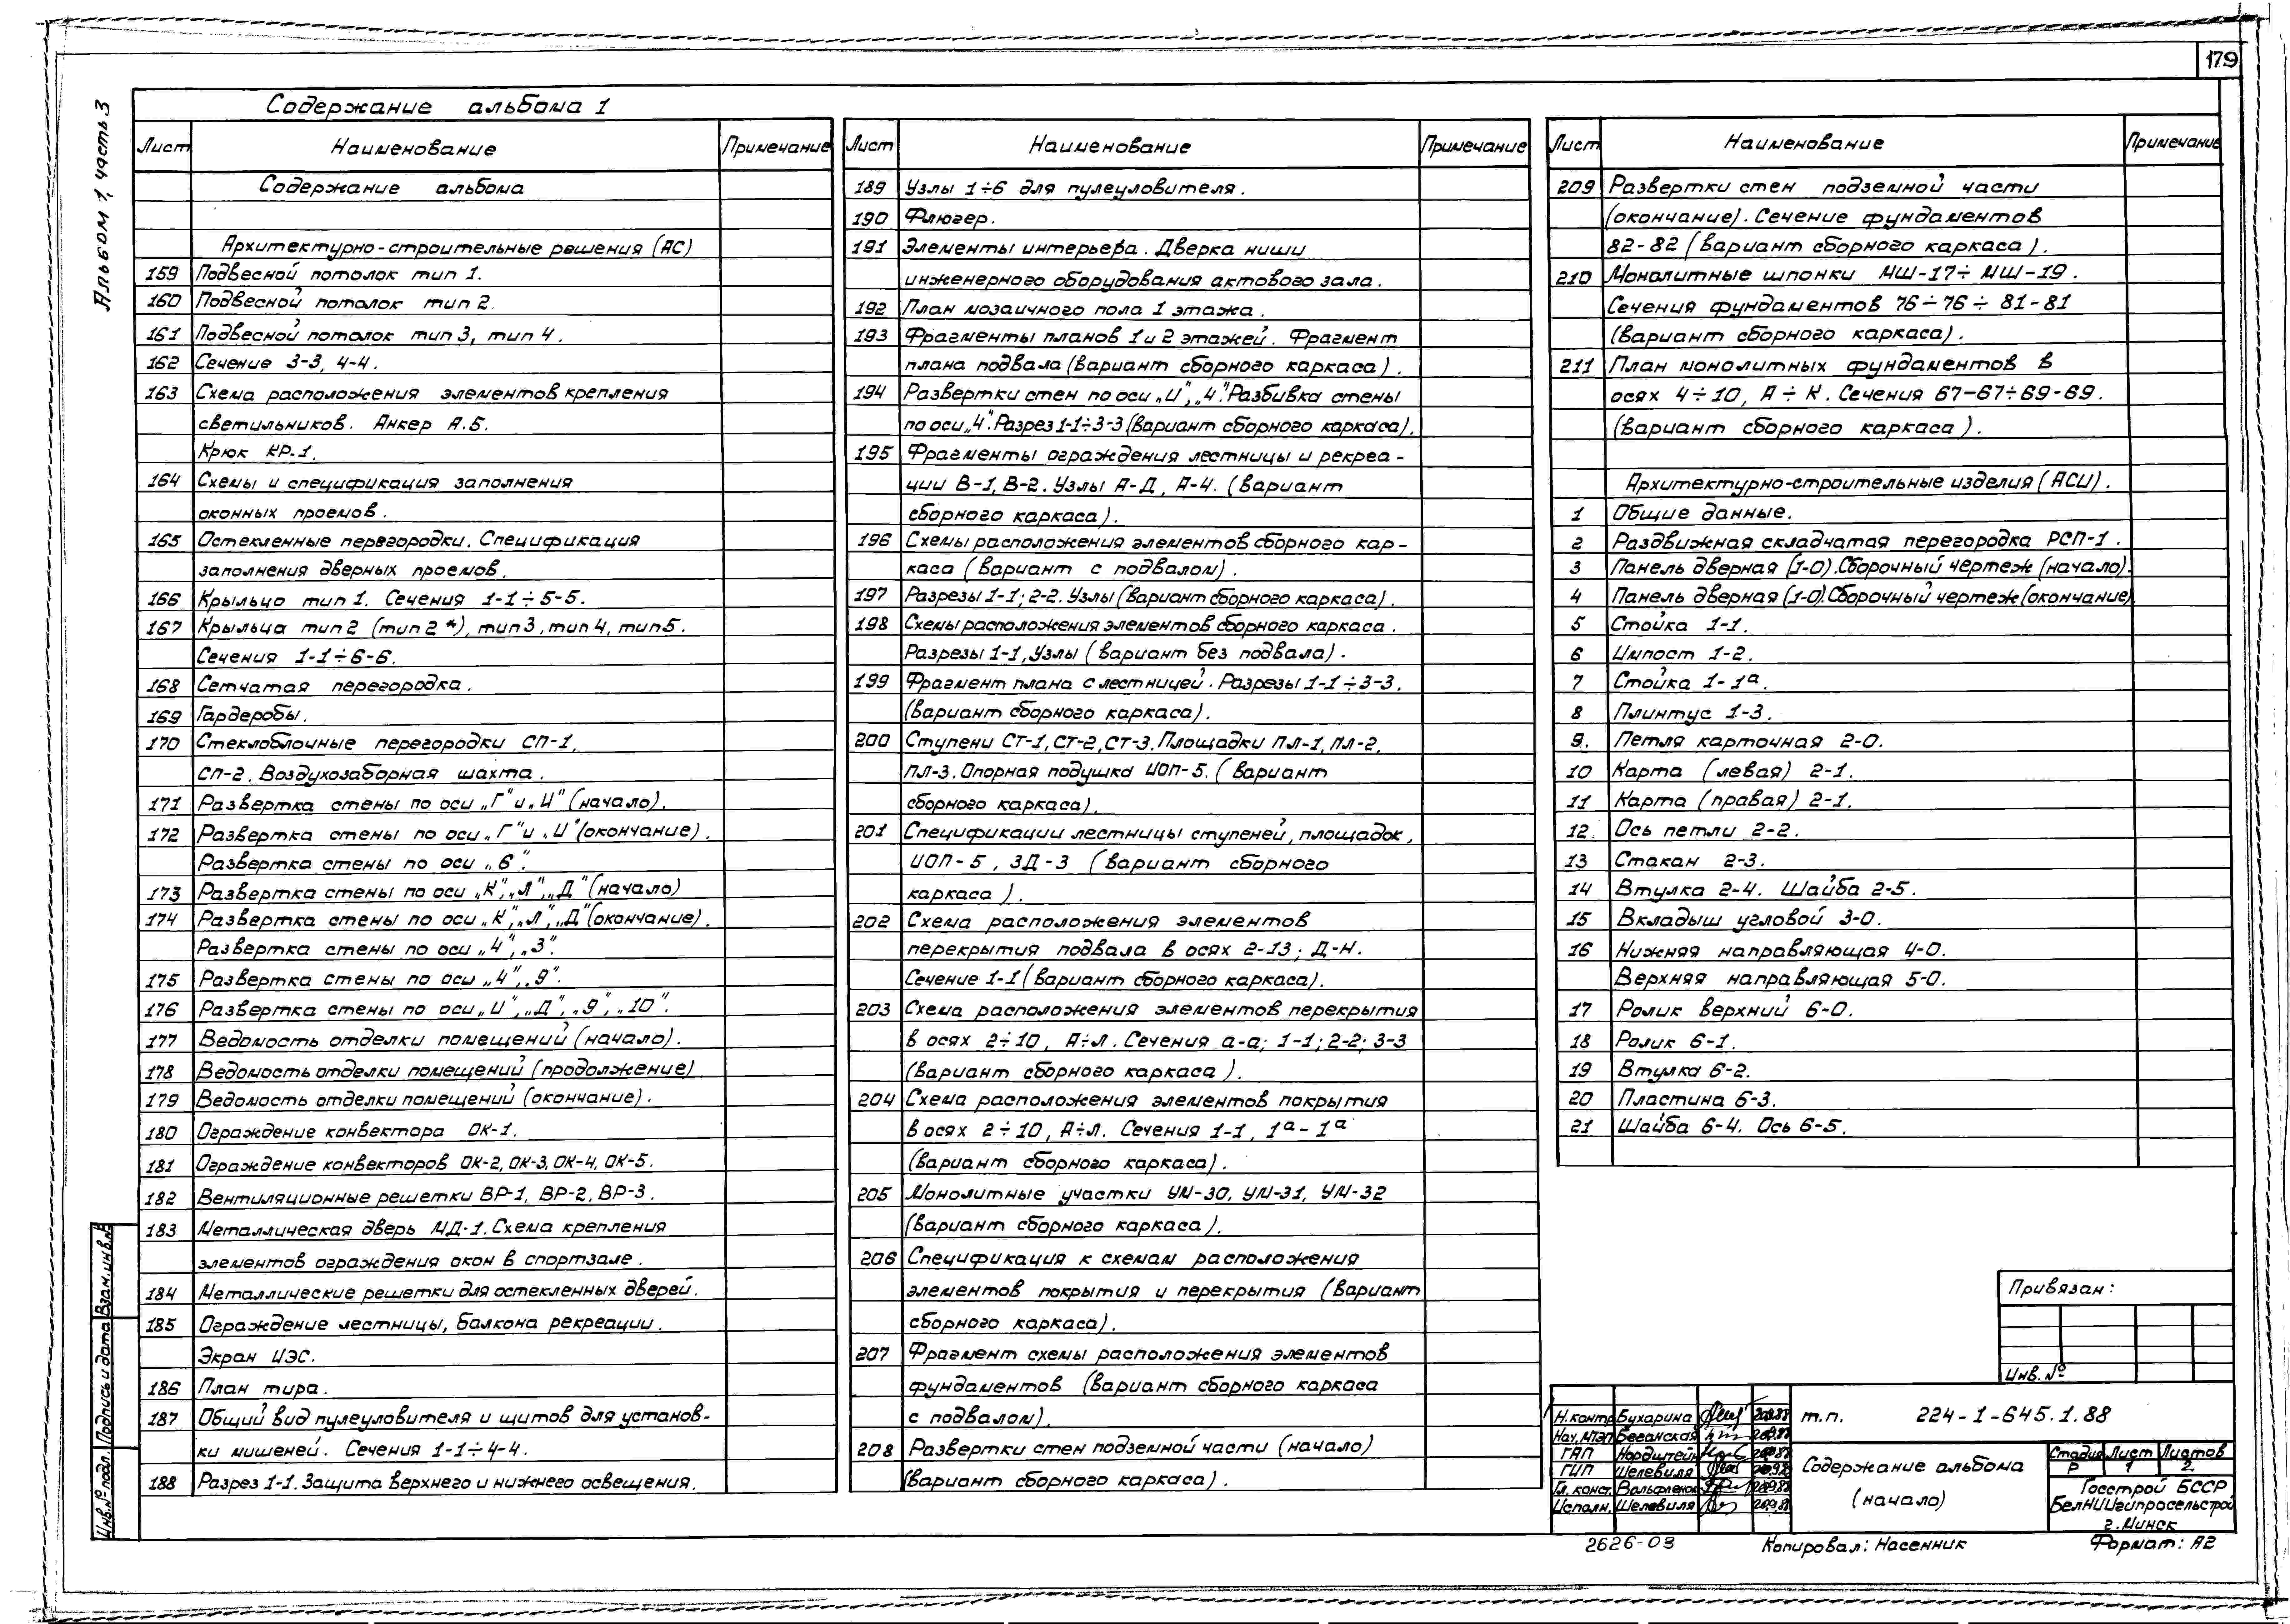 179
Альбом 1, часть 3
Содержание альбома 1
Лист Наименование Примечание
Содержание альбома
Архитектурно-строительные решения (АС)
159 Подвесной потолок тип 1.
160 Подвесной потолок тип 2.
161 Подвесной потолок тип 3, тип 4.
162 Сечение 3-3, 4-4.
163 Схема расположения элементов крепления
светильников. Анкер А.5.
Крюк КР-1.
164 Схемы и спецификация заполнения
оконных проемов.
165 Остекленные перегородки. Спецификация
заполнения дверных проемов.
166 Крыльцо тип 1. Сечения 1-1÷5-5.
167 Крыльца тип 2 (тип 2*), тип 3, тип 4, тип 5.
Сечения 1-1÷6-6.
168 Сетчатая перегородка.
169 Гардеробы.
170 Стеклоблочные перегородки СП-1,
СП-2. Воздухозаборная шахта.
171 Развертка стены по оси „Г" и „И" (начало).
172 Развертка стены по оси „Г" и „И" (окончание).
Развертка стены по оси „6".
173 Развертка стены по оси „К", „Л", „Д" (начало)
174 Развертка стены по оси „К", „Л", „Д" (окончание).
Развертка стены по оси „4", „3".
175 Развертка стены по оси „4", „9".
176 Развертка стены по оси „И", „Д", „9", „10".
177 Ведомость отделки помещений (начало).
178 Ведомость отделки помещений (продолжение)
179 Ведомость отделки помещений (окончание).
180 Ограждение конвектора ОК-1.
181 Ограждение конвекторов ОК-2, ОК-3, ОК-4, ОК-5.
182 Вентиляционные решетки ВР-1, ВР-2, ВР-3.
183 Металлическая дверь МД-1. Схема крепления
элементов ограждения окон в спортзале.
184 Металлические решетки для остекленных дверей.
185 Ограждение лестницы, балкона рекреации.
Экран ИЭС.
186 План тира.
187 Общий вид пулеуловителя и щитов для установ-
ки мишеней. Сечения 1-1÷4-4.
188 Разрез 1-1. Защита верхнего и нижнего освещения.
Лист Наименование Примечание
189 Узлы 1÷6 для пулеуловителя.
190 Флюгер.
191 Элементы интерьера. Дверка ниши
инженерного оборудования актового зала.
192 План мозаичного пола 1 этажа.
193 Фрагменты планов 1 и 2 этажей. Фрагмент
плана подвала (вариант сборного каркаса).
194 Развертки стен по оси „И", „4". Разбивка стены
по оси „4". Разрез 1-1÷3-3 (вариант сборного каркаса).
195 Фрагменты ограждения лестницы и рекреа-
ции В-1, В-2. Узлы А-Д, А-4. (вариант
сборного каркаса).
196 Схемы расположения элементов сборного кар-
каса (вариант с подвалом).
197 Разрезы 1-1; 2-2. Узлы (вариант сборного каркаса).
198 Схемы расположения элементов сборного каркаса.
Разрезы 1-1, Узлы (вариант без подвала).
199 Фрагмент плана с лестницей. Разрезы 1-1÷3-3.
(вариант сборного каркаса).
200 Ступени Ст-1, Ст-2, Ст-3. Площадки ПЛ-1, ПЛ-2,
ПЛ-3. Опорная подушка ИОП-5. (вариант
сборного каркаса).
201 Спецификации лестницы ступеней, площадок,
ИОП-5, ЗД-3 (вариант сборного
каркаса).
202 Схема расположения элементов
перекрытия подвала в осях 2-13; Д-Н.
Сечение 1-1 (вариант сборного каркаса).
203 Схема расположения элементов перекрытия
в осях 2÷10, А÷Л. Сечения а-а; 1-1; 2-2; 3-3
(вариант сборного каркаса).
204 Схема расположения элементов покрытия
в осях 2÷10, А÷Л. Сечения 1-1, 1а-1а
(вариант сборного каркаса).
205 Монолитные участки УМ-30, УМ-31, УМ-32
(вариант сборного каркаса).
206 Спецификация к схемам расположения
элементов покрытия и перекрытия (вариант
сборного каркаса).
207 Фрагмент схемы расположения элементов
фундаментов (вариант сборного каркаса
с подвалом).
208 Развертки стен подземной части (начало)
(вариант сборного каркаса).
Лист Наименование Примечание
209 Развертки стен подземной части
(окончание). Сечение фундаментов
82-82 (вариант сборного каркаса).
210 Монолитные шпонки МШ-17÷МШ-19.
Сечения фундаментов 76÷76÷81-81
(вариант сборного каркаса).
211 План монолитных фундаментов в
осях 4÷10, А÷К. Сечения 67-67÷69-69.
(вариант сборного каркаса).
Архитектурно-строительные изделия (АСИ).
1 Общие данные.
2 Раздвижная складчатая перегородка РСП-1.
3 Панель дверная (1-0). Сборочный чертеж (начало).
4 Панель дверная (1-0). Сборочный чертеж (окончание)
5 Стойка 1-1.
6 Импост 1-2.
7 Стойка 1-1а.
8 Плинтус 1-3.
9. Петля карточная 2-0.
10 Карта (левая) 2-1.
11 Карта (правая) 2-1.
12. Ось петли 2-2.
13 Стакан 2-3.
14 Втулка 2-4. Шайба 2-5.
15 Вкладыш угловой 3-0.
16 Нижняя направляющая 4-0.
Верхняя направляющая 5-0.
17 Ролик верхний 6-0.
18 Ролик 6-1.
19 Втулка 6-2.
20 Пластина 6-3.
21 Шайба 6-4. Ось 6-5.
Привязан:
Инв. №
Н.контр. Бухарина
Нач. МТЭП
ГАП
ГИП Шелевиля
Гл. конст.
Исполн. Шелевиля
т.п. 224-1-645.1.88
Содержание альбома
(начало)
Стадия Лист Листов
Р 1 2
Госстрой БССР
БелНИИгипросельстрой
г. Минск
2626-03 Копировал: Насенник Формат: А2
Инв. № подл. Подпись и дата Взам. инв. №